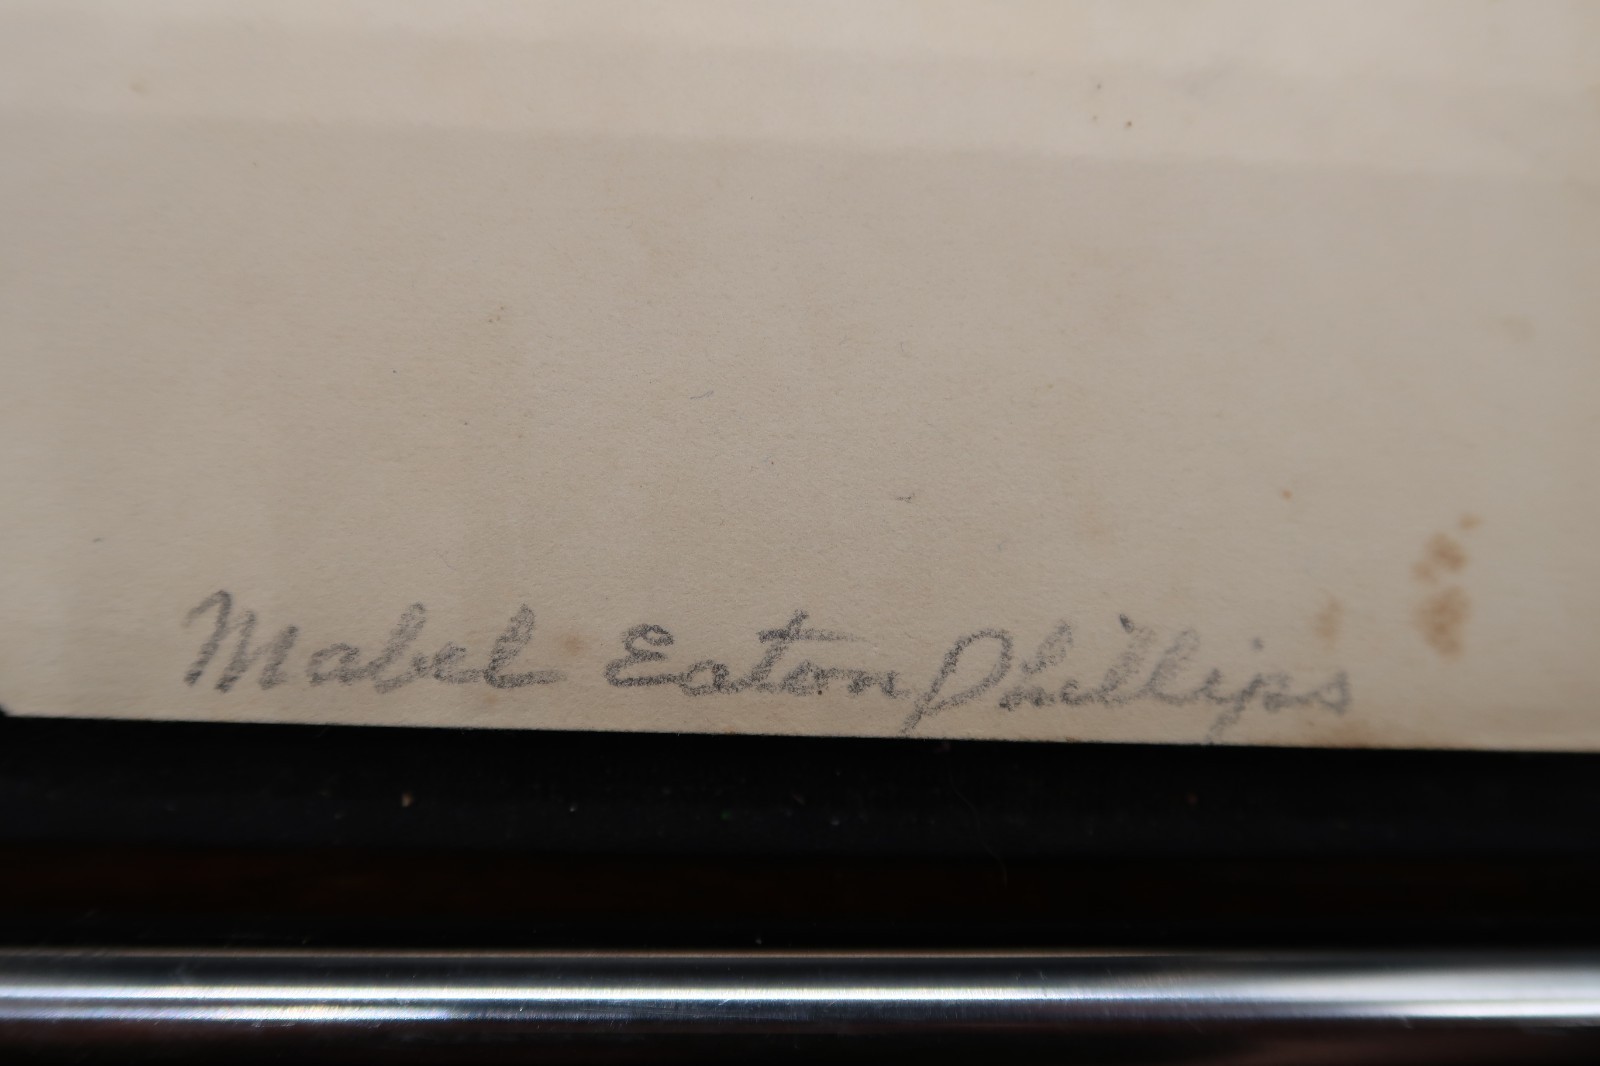 Mabel Eaton Phillips